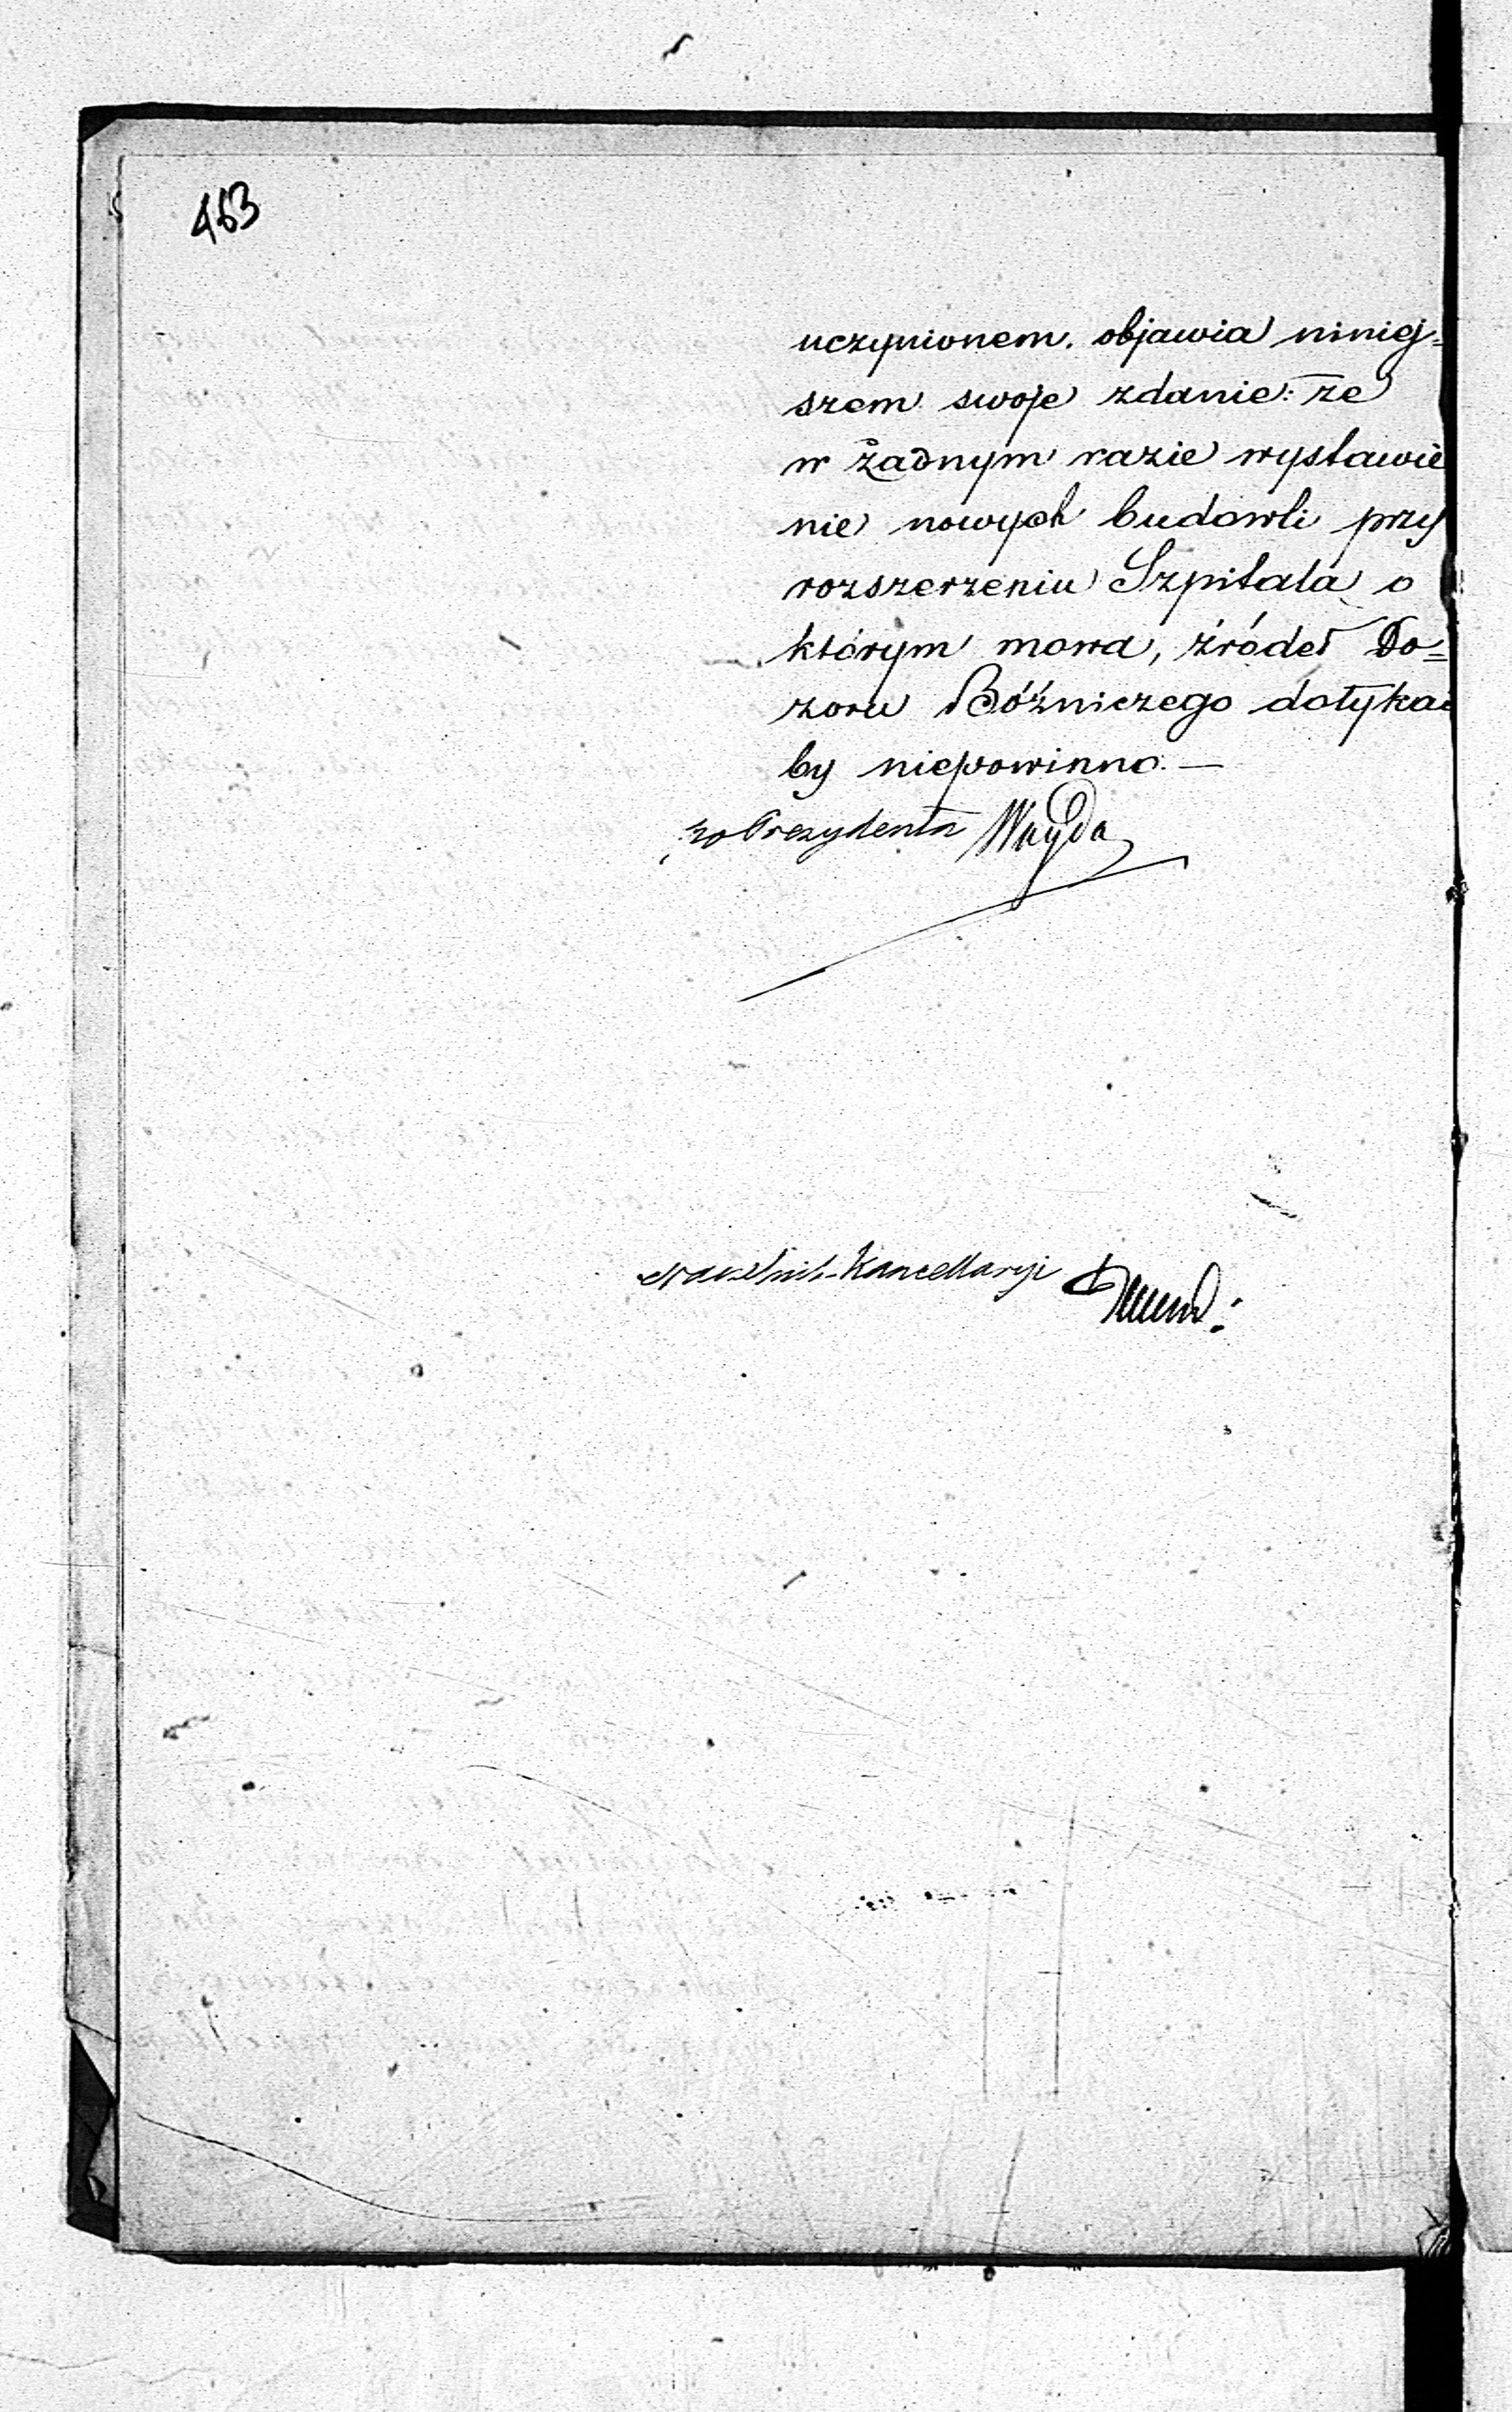 463
uczynionem. objawia niniej=
szem swoje zdanie: że
w żadnym razie wystawie
nie nowych budowli przy
rozszerzeniu Szpitala o
którym mowa, źródeł Do=
zoru Bóżniczego dotykać
by niepowinno.—
za Prezydenta Wayda
Naczelnik Kancellaryi